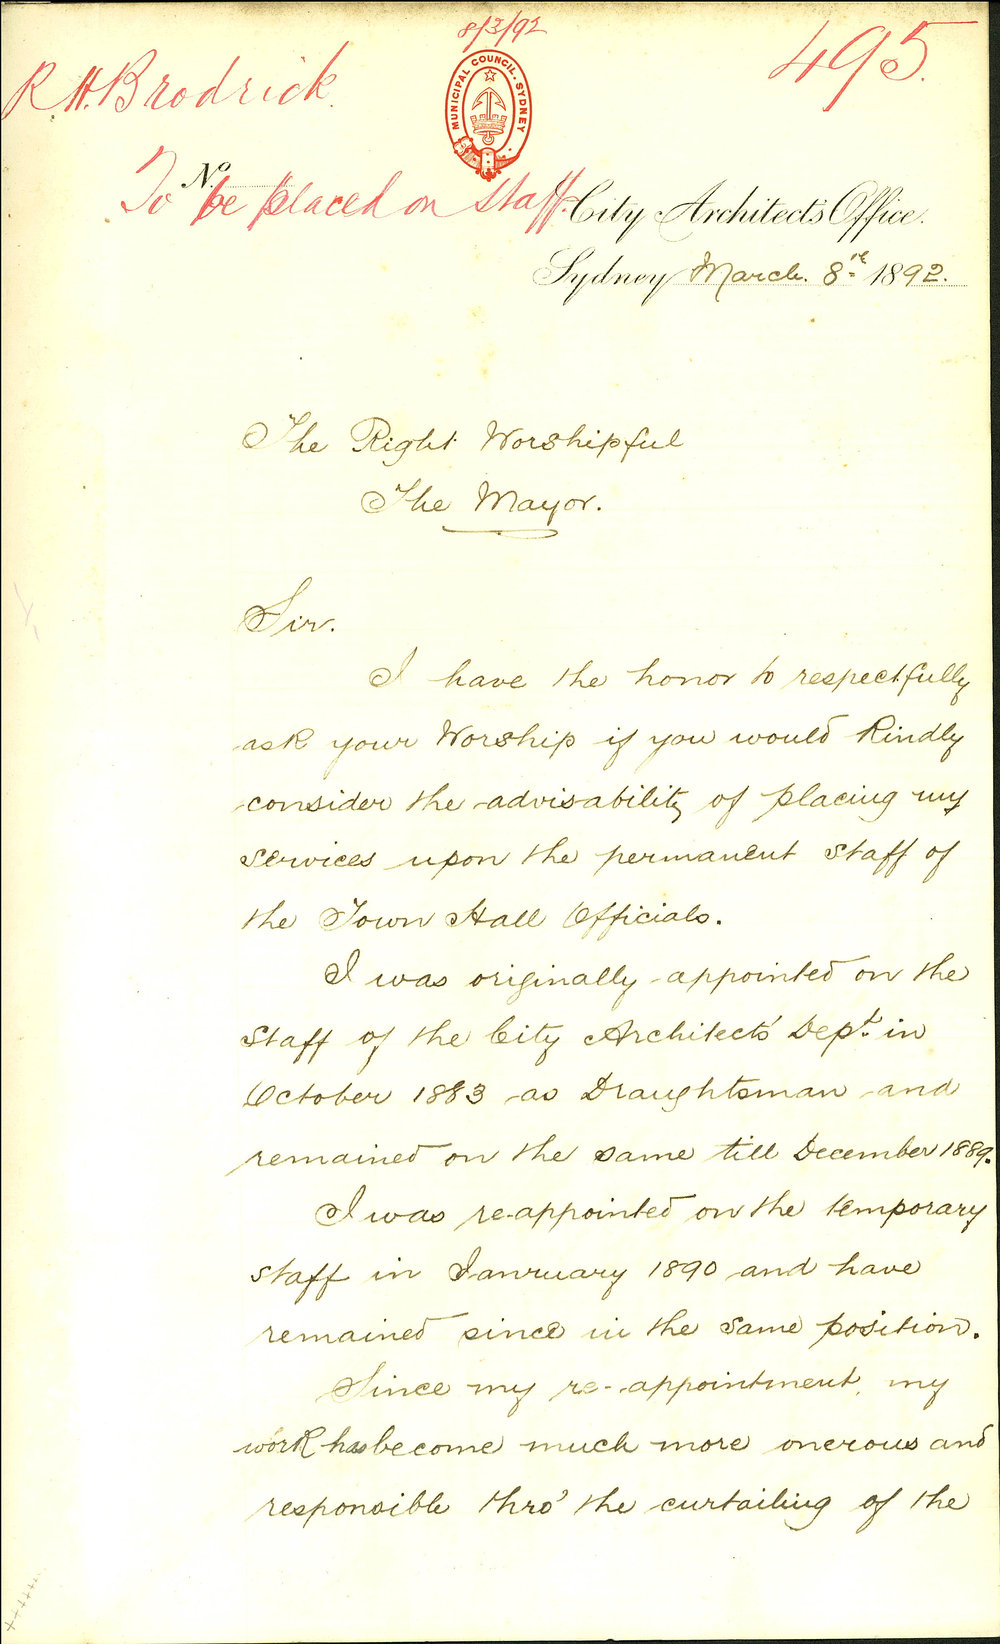 8/3/92
495.
R H. Brodrick.
MUNICIPAL COUNCIL. SYDNEY
No
To be placed on staff.
City Architect's Office.
Sydney March. 8th 1892.
The Right Worshipful
The Mayor.
Sir.
I have the honor to respectfully
ask your Worship if you would kindly
consider the advisability of placing my
services upon the permanent staff of
the Town Hall Officials.
I was originally appointed on the
staff of the City Architects' Dept. in
October 1883 as Draughtsman and
remained on the same till December 1889.
I was re-appointed on the temporary
staff in January 1890 and have
remained since in the same position.
Since my re-appointment, my
work has become much more onerous and
responsible thro' the curtailing of the